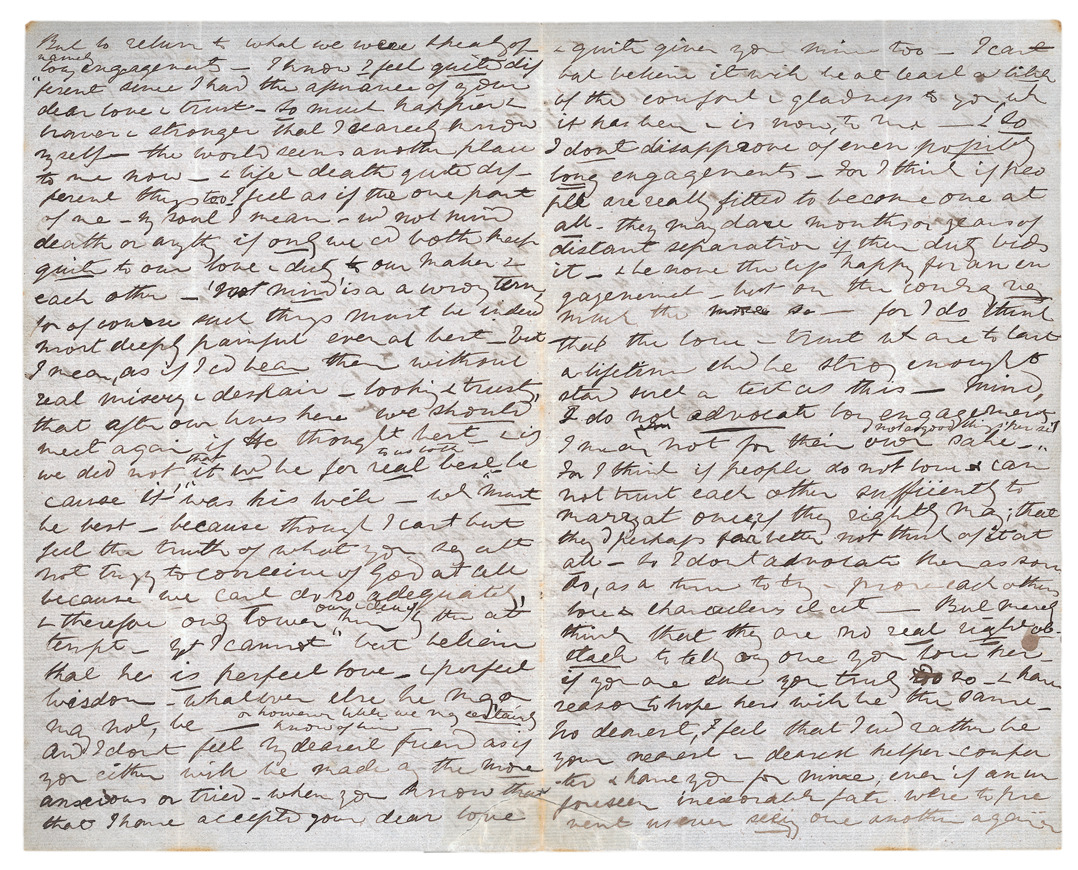 But to return to what we were speakg of-
named
long engagements - I know I feel quite dif
ferent since I had the assurance of your
dear love & trust - So much happier &
braver & stronger that I scarcely know
myself - the world seems another place
to me now - & life & death quite dif-
ferent things too. I feel as if the one part
of me - my soul I mean - wd not mind
death or anythg if only we cd both keep
quite to our love & duty to our maker &
each other - 'not mind' is a wrong term,
for of course such things must be indeed
most deeply painful even at best - but
I mean, as if I cd bear them without
real misery & despair - looking & trustg
that after our lives here "we should"
meet again if He thought best - & if
we did not, that it wd be for real best be
to us both
cause it "was his will - wh "must
be best - because though I cant but
feel the truth of what you say abt
not tryg to conceive of God at all
because we cant do so adequately,
& therefore only lower our idea of him by the at
tempt - yet I cannot but believe
that he is perfect love - & perfect
wisdom - whatever else he may or
may not, be - or however little we may certainly
know of him -
And I dont feel my dearest friend as if
you either will be made any the more
anxious or tried - when you know that
that I have accepted your dear love
& quite given you mine too - I cant
but believe it will be at least a little
of the comfort & gladness to you wh
it has been & is now, to me - & So
I dont disapprove of even possibly
long engagements - For I think if peo
ple are really fitted to become one at
all - they may dare months or years of
distant separation if their duty bids
it - & be none the less happy for an en
gagement - but on the contrary very
much the more so - for I do think
that the love & trust wh are to last
a lifetime shd be strong enough to
stan such a test as this - Mind,
I do not advocate long engagements
not as good things per se
I mean not for their own sake -
For I think if people do not love & can
not trust each other sufficiently to
marry at once, if they rightly may, that
they'd perhaps far better not think of it at
all - So I dont advocate them as some
do, as a time to try & prove each others
love & characters in at - But merely
think that they are no real right ob-
stacle to tellg any one you love her -
if you are sure you truly do so - & have
reason to hope hers will be the same -
So dearest, I feel that I wd rather be
your nearest & dearest helper & comfor
-ter & have you for mine, even if an un
foreseen inexorable fate were to pre
vent us ever seeg one another again